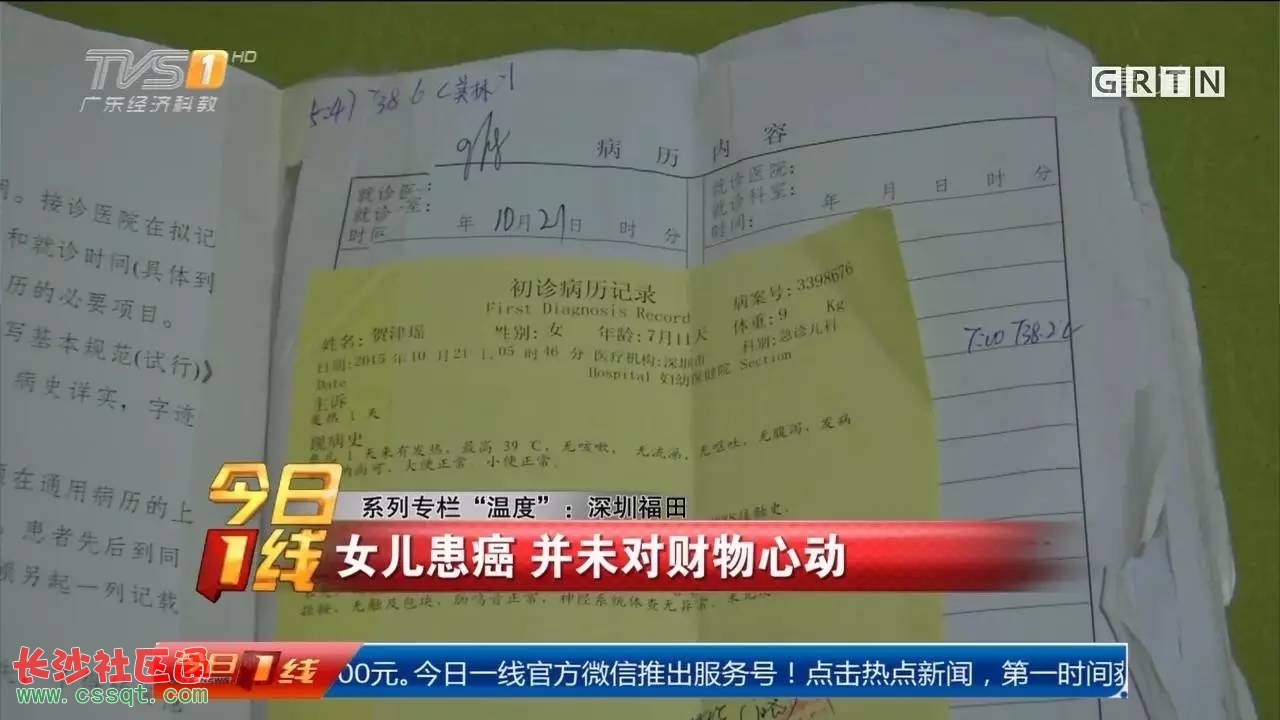 TVS1 HD
广东经济科教
GRTN
病 历 内 容
就诊医院：
就诊科室：
时间： 年 月 日 时 分
年 10月21日 时 分
。接诊医院在拟记
和就诊时间(具体到
历的必要项目。
写基本规范(试行)》
病史详实，字迹
在通用病历的上
患者先后到同
另起一列记载
初诊病历记录
First Diagnosis Record
病案号：3398676
姓名：贺津瑶 性别：女 年龄：7月11天 体重：9 Kg
日期：2015年10月21 05时46分 医疗机构：深圳市 科别：急诊儿科
Date Hospital 妇幼保健院 Section
主诉
发热 1 天
现病史
1天来有发热，最高 39 ℃，无咳嗽， 无流涕，无呕吐，无腹泻，发病
大便正常 小便正常。
7:00 T38.2℃
系列专栏“温度”：深圳福田
今日1线
女儿患癌 并未对财物心动
无触及包块，肠鸣音正常，神经系统体查无异常
今日1线
00元。今日一线官方微信推出服务号！点击热点新闻，第一时间
长沙社区通
www.cssqt.com